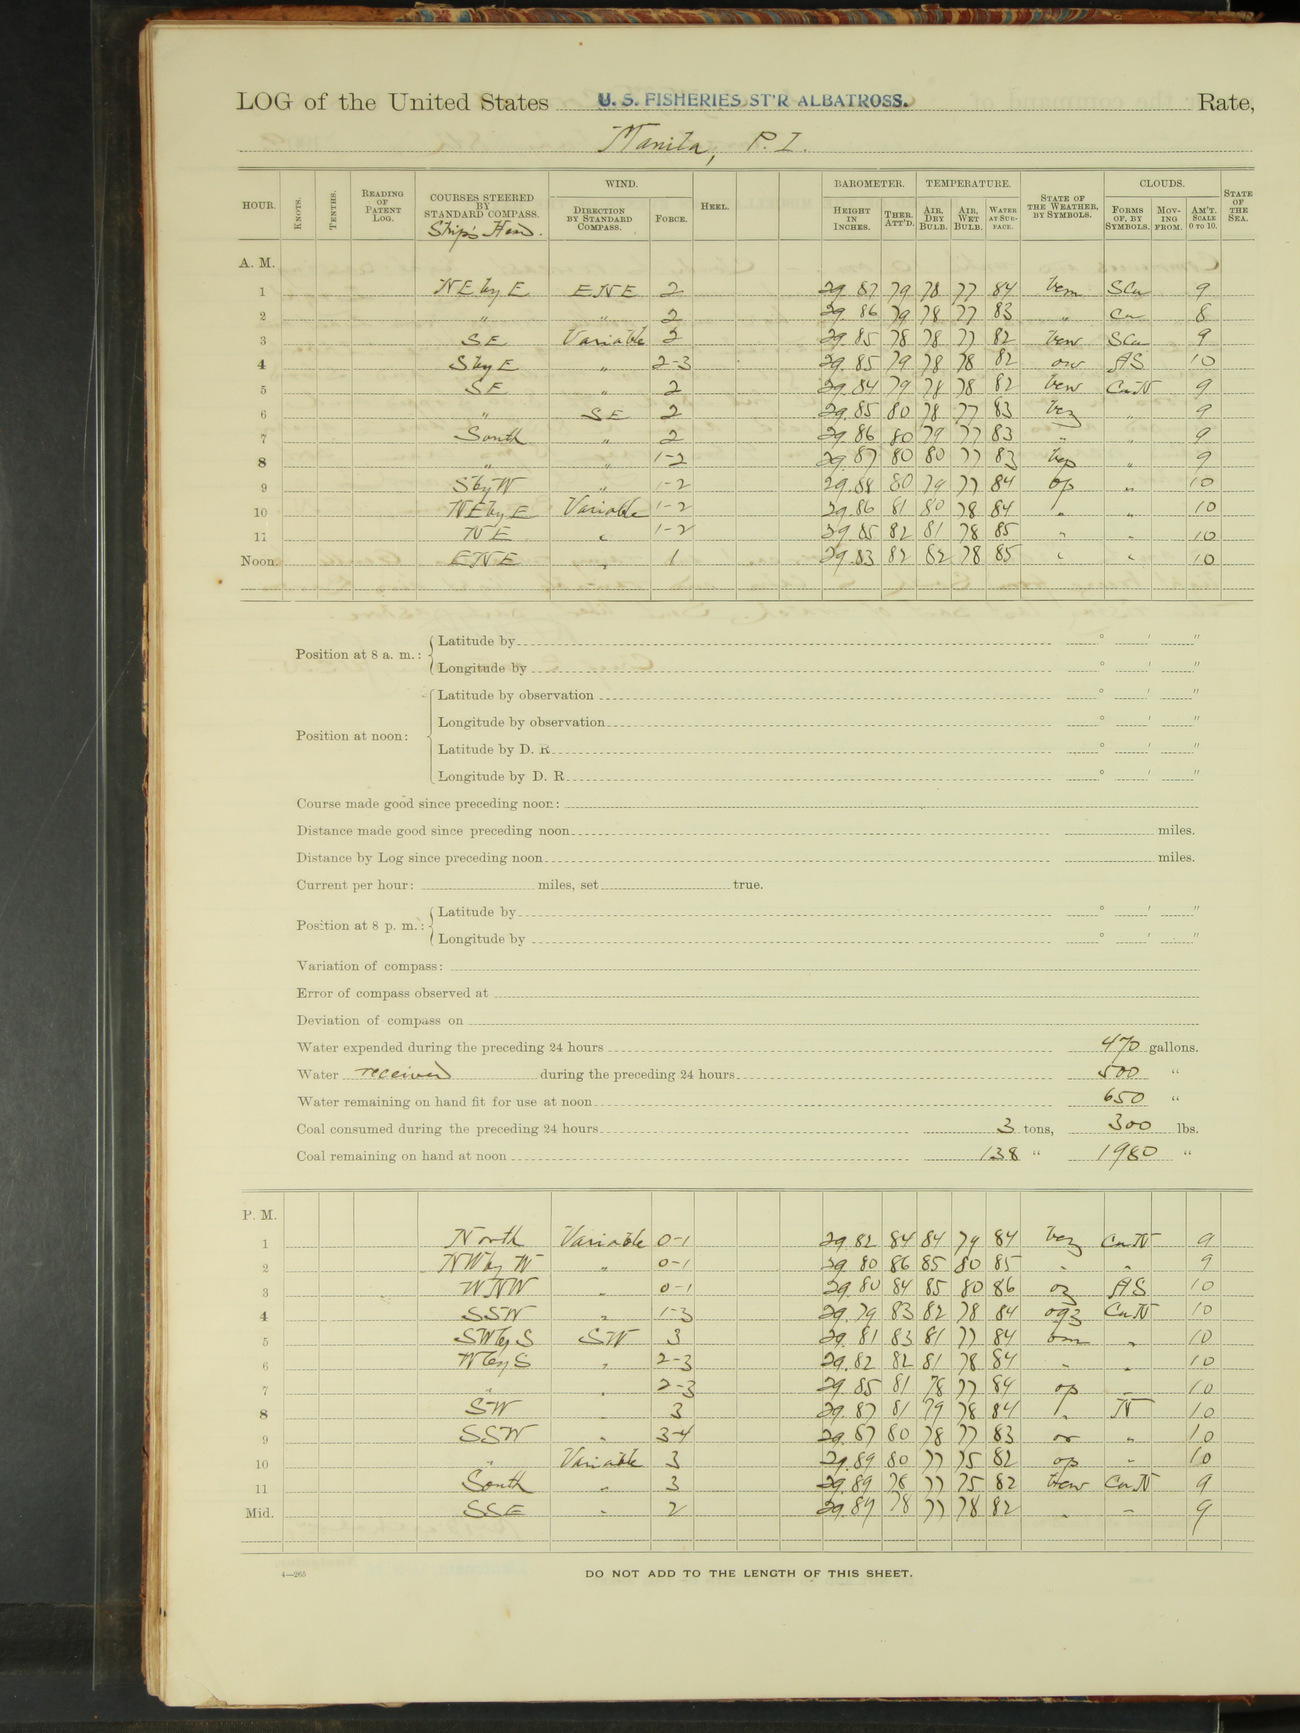 LOG of the United States U. S. FISHERIES ST'R ALBATROSS. Rate,
Manila, P. I.
HOUR. KNOTS. TENTHS. READING OF PATENT LOG. COURSES STEERED BY STANDARD COMPASS. Ship's Head. WIND. DIRECTION BY STANDARD COMPASS. FORCE. HEEL. BAROMETER. HEIGHT IN INCHES. THER. ATT'D. TEMPERATURE. AIR, DRY BULB. AIR, WET BULB. WATER AT SURFACE. STATE OF THE WEATHER, BY SYMBOLS. CLOUDS. FORMS OF, BY SYMBOLS. MOVING FROM. AM'T. SCALE 0 TO 10. STATE OF THE SEA.
A. M.
1 NE by E ENE 2 29.87 79 78 77 84 bcm SCu 9
2 " " 2 29.86 79 78 77 83 " Cu 8
3 SE Variable 2 29.85 78 78 77 82 bcw SCu 9
4 S by E " 2-3 29.85 79 78 78 82 ow AS 10
5 SE " 2 29.84 79 78 78 82 bcw CuN 9
6 " SE 2 29.85 80 78 77 83 bcz " 9
7 South " 2 29.86 80 79 77 83 " " 9
8 " " 1-2 29.87 80 80 77 83 bcp " 9
9 S by W " 1-2 29.88 80 79 77 84 op " 10
10 NE by E Variable 1-2 29.86 81 80 78 84 " " 10
11 NE " 1-2 29.85 82 81 78 85 " " 10
Noon. ENE " 1 29.83 82 82 78 85 " " 10
Position at 8 a. m.: Latitude by ° ′ ″
Longitude by ° ′ ″
Position at noon: Latitude by observation ° ′ ″
Longitude by observation ° ′ ″
Latitude by D. R. ° ′ ″
Longitude by D. R. ° ′ ″
Course made good since preceding noon:
Distance made good since preceding noon miles.
Distance by Log since preceding noon miles.
Current per hour: miles, set true.
Position at 8 p. m.: Latitude by ° ′ ″
Longitude by ° ′ ″
Variation of compass:
Error of compass observed at
Deviation of compass on
Water expended during the preceding 24 hours 470 gallons.
Water received during the preceding 24 hours 500 "
Water remaining on hand fit for use at noon 650 "
Coal consumed during the preceding 24 hours 3 tons, 300 lbs.
Coal remaining on hand at noon 138 " 1980 "
P. M.
1 North Variable 0-1 29.82 84 84 79 84 bcz CuN 9
2 NW by W " 0-1 29.80 86 85 80 85 " " 9
3 WNW " 0-1 29.80 84 85 80 86 oz AS 10
4 SSW " 1-3 29.79 83 82 78 84 oqz CuN 10
5 SW by S SW 3 29.81 83 81 77 84 om " 10
6 W by S " 2-3 29.82 82 81 78 84 " " 10
7 " " 2-3 29.85 81 78 77 84 op " 10
8 SW " 3 29.87 81 79 78 84 " N 10
9 SSW " 3-4 29.87 80 78 77 83 or " 10
10 " Variable 3 29.89 80 77 75 82 op " 10
11 South " 3 29.89 78 77 75 82 bcw CuN 9
Mid. SSE " 2 29.89 78 77 78 82 " " 9
4—265
DO NOT ADD TO THE LENGTH OF THIS SHEET.